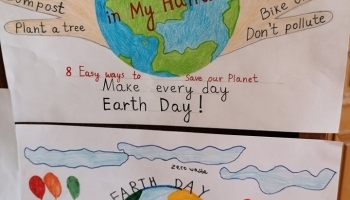 in My Han
Compost
Bike
Plant a tree
Don't pollute
8 Easy ways to Save our Planet
Make every day
Earth Day!
zero waste
EARTH DAY